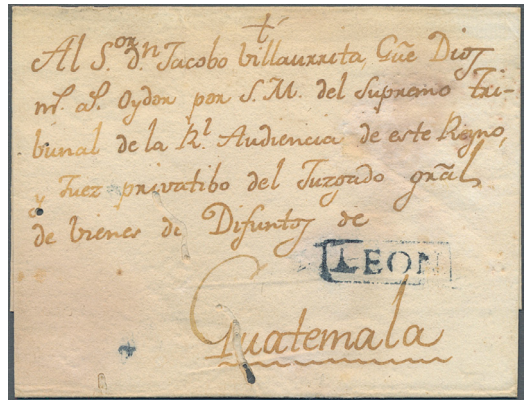 †
Al S.or d.n Jacobo Villaurrita, Gũe Dios
m.s a.s Oydor por S. M. del Supremo Tri-
bunal de la R.l Audiencia de este Reyno,
y Juez privatibo del Juzgado grãl
de bienes de Difuntos de
LEON
Guatemala